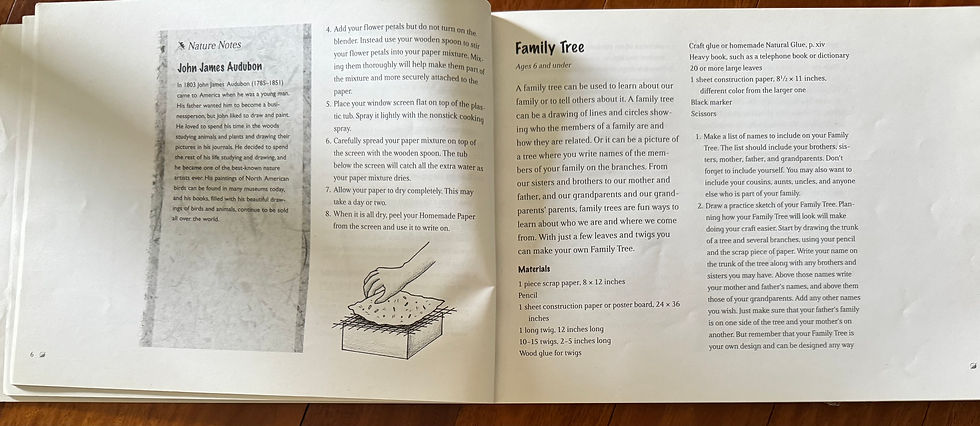 Nature Notes
John James Audubon
In 1803 John James Audubon (1785–1851)
came to America when he was a young man.
His father wanted him to become a busi-
nessperson, but John liked to draw and paint.
He loved to spend his time in the woods
studying animals and plants and drawing their
pictures in his journals. He decided to spend
the rest of his life studying and drawing, and
he became one of the best-known nature
artists ever. His paintings of North American
birds can be found in many museums today,
and his books, filled with his beautiful draw-
ings of birds and animals, continue to be sold
all over the world.
6
4. Add your flower petals but do not turn on the
blender. Instead use your wooden spoon to stir
your flower petals into your paper mixture. Mix-
ing them thoroughly will help make them part of
the mixture and more securely attached to the
paper.
5. Place your window screen flat on top of the plas-
tic tub. Spray it lightly with the nonstick cooking
spray.
6. Carefully spread your paper mixture on top of
the screen with the wooden spoon. The tub
below the screen will catch all the extra water as
your paper mixture dries.
7. Allow your paper to dry completely. This may
take a day or two.
8. When it is all dry, peel your Homemade Paper
from the screen and use it to write on.
Family Tree
Ages 6 and under
A family tree can be used to learn about our
family or to tell others about it. A family tree
can be a drawing of lines and circles show-
ing who the members of a family are and
how they are related. Or it can be a picture of
a tree where you write names of the mem-
bers of your family on the branches. From
our sisters and brothers to our mother and
father, and our grandparents and our grand-
parents' parents, family trees are fun ways to
learn about who we are and where we come
from. With just a few leaves and twigs you
can make your own Family Tree.
Materials
1 piece scrap paper, 8 × 12 inches
Pencil
1 sheet construction paper or poster board, 24 × 36
inches
1 long twig, 12 inches long
10–15 twigs, 2–5 inches long
Wood glue for twigs
Craft glue or homemade Natural Glue, p. xiv
Heavy book, such as a telephone book or dictionary
20 or more large leaves
1 sheet construction paper, 8½ × 11 inches,
different color from the larger one
Black marker
Scissors
1. Make a list of names to include on your Family
Tree. The list should include your brothers, sis-
ters, mother, father, and grandparents. Don't
forget to include yourself. You may also want to
include your cousins, aunts, uncles, and anyone
else who is part of your family.
2. Draw a practice sketch of your Family Tree. Plan-
ning how your Family Tree will look will make
doing your craft easier. Start by drawing the trunk
of a tree and several branches, using your pencil
and the scrap piece of paper. Write your name on
the trunk of the tree along with any brothers and
sisters you may have. Above those names write
your mother and father's names, and above them
those of your grandparents. Add any other names
you wish. Just make sure that your father's family
is on one side of the tree and your mother's on
another. But remember that your Family Tree is
your own design and can be designed any way